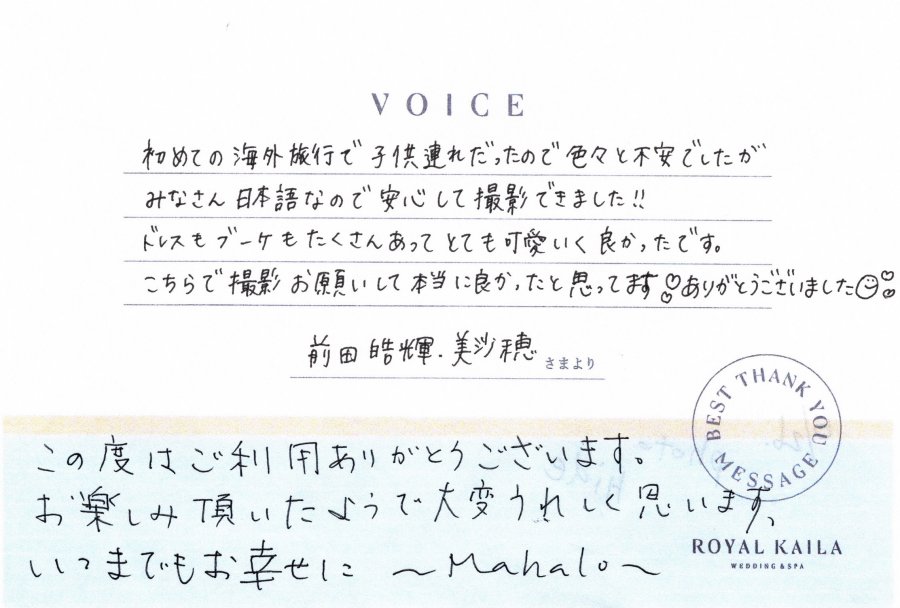 VOICE
初めての海外旅行で子供連れだったので色々と不安でしたが
みなさん日本語なので安心して撮影できました!!
ドレスもブーケもたくさんあってとても可愛いく良かったです。
こちらで撮影お願いして本当に良かったと思ってます♡ありがとうございました☺♡
前田皓輝.美沙穂 さまより
BEST THANK YOU MESSAGE
この度はご利用ありがとうございます。
お楽しみ頂いたようで大変うれしく思います。
いつまでもお幸せに 〜Mahalo〜
ROYAL KAILA
WEDDING & SPA